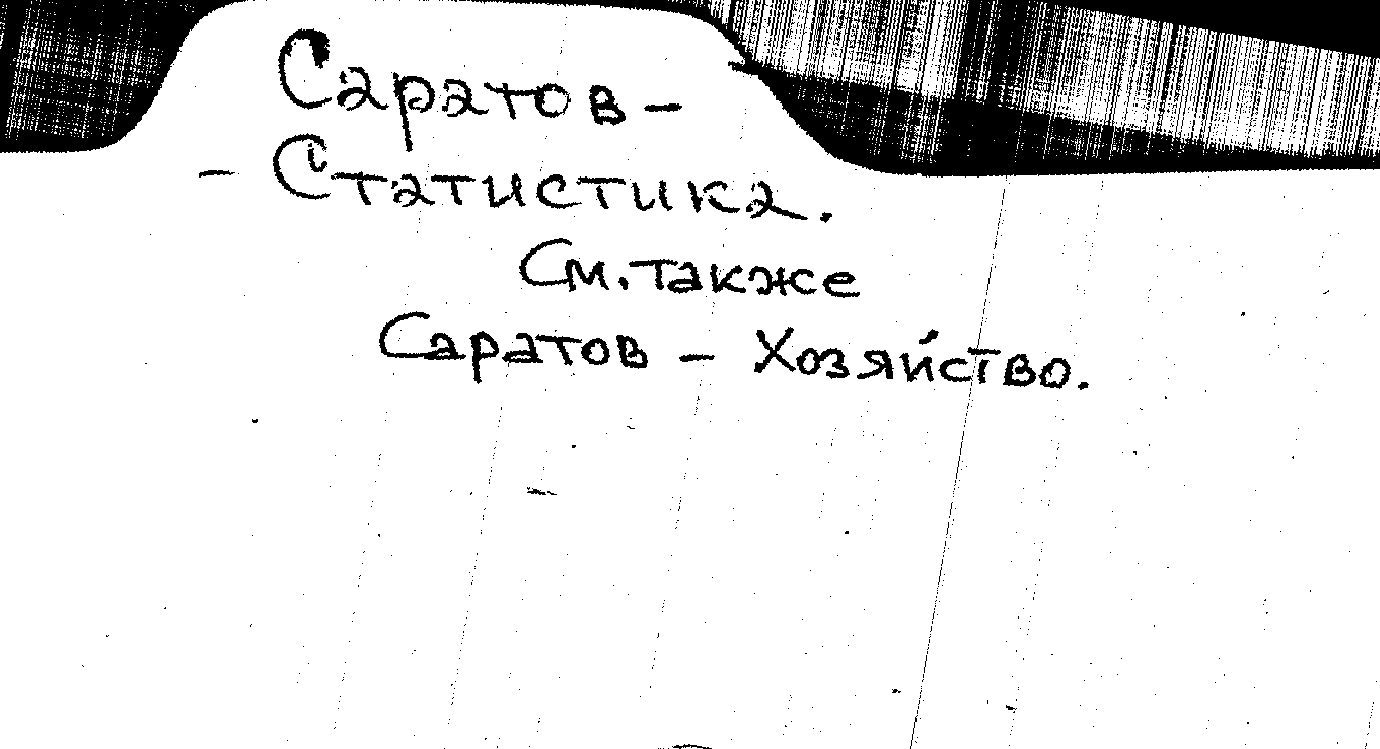 Саратов –
– Статистика.
См. также
Саратов – Хозяйство.